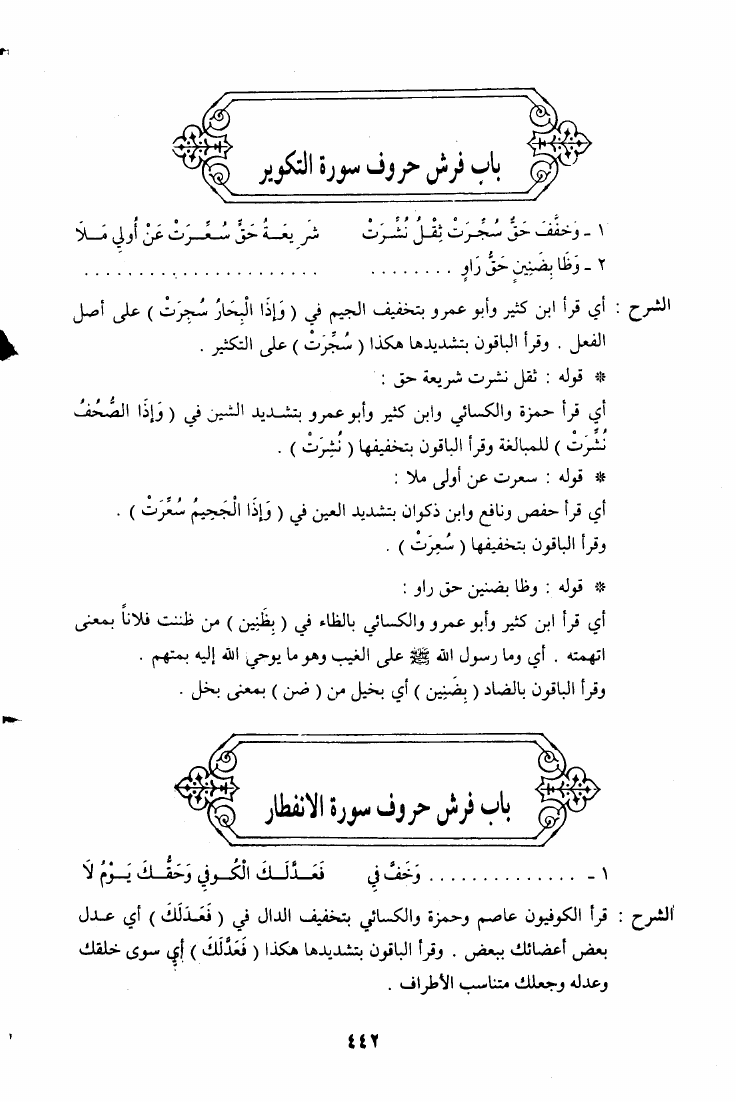 باب فرش حروف سورة التكوير
١ - وَخَفَّفَ حَقٌّ سُجِّرَتْ ثِقْـلُ نُشِّرَتْ شَرِيعَـةُ حَقٍّ سُـعِّـرَتْ عَنْ أُولِي مَـلَا
٢ - وَظَا بِضَنِينٍ حَقُّ رَاوٍ . . . . . . . . . . . . . . . . . . . . . . . . . . . . . .
الشرح : أي قرأ ابن كثير وأبو عمرو بتخفيف الجيم في ( وَإِذَا الْبِحَارُ سُجِرَتْ ) على أصل
الفعل . وقرأ الباقون بتشديدها هكذا ( سُجِّرَتْ ) على التكثير .
* قوله : ثقل نشرت شريعة حق :
أي قرأ حمزة والكسائي وابن كثير وأبو عمرو بتشـديد الشين في ( وَإِذَا الصُّحُفُ
نُشِّرَتْ ) للمبالغة وقرأ الباقون بتخفيفها ( نُشِرَتْ ) .
* قوله : سعرت عن أولى ملا :
أي قرأ حفص ونافع وابن ذكوان بتشديد العين في ( وَإِذَا الْجَحِيمُ سُعِّرَتْ ) .
وقرأ الباقون بتخفيفها ( سُعِرَتْ ) .
* قوله : وظا بضنين حق راو :
أي قرأ ابن كثير وأبو عمرو والكسائي بالظاء في ( بِظَنِين ) من ظننت فلاناً بمعنى
اتهمته . أي وما رسول الله ﷺ على الغيب وهو ما يوحي الله إليه بمتهم .
وقرأ الباقون بالضاد ( بِضَنِين ) أي بخيل من ( ضن ) بمعنى بخل .
باب فرش حروف سورة الانفطار
١ - . . . . . . . . . . . . . . . وَخَفَّ فِي فَعَـدَّلَـكَ الْكُـوفِي وَحَقُّـكَ يَـوْمُ لَا
الشرح : قرأ الكوفيون عاصم وحمزة والكسائي بتخفيف الدال في ( فَعَـدَلَكَ ) أي عـدل
بعض أعضائك ببعض . وقرأ الباقون بتشديدها هكذا ( فَعَدَّلَكَ ) أي سوى خلقك
وعدله وجعلك متناسب الأطراف .
٤٤٢